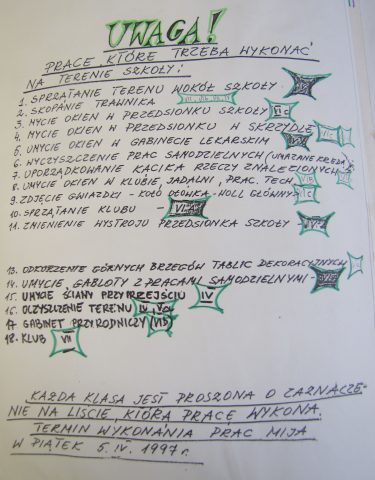 UWAGA!
PRACE, KTÓRE TRZEBA WYKONAĆ
NA TERENIE SZKOŁY:
1. SPRZĄTANIE TERENU WOKÓŁ SZKOŁY
2. SKOPANIE TRAWNIKA
3. MYCIE OKIEN W PRZEDSIONKU SZKOŁY VI c
4. MYCIE OKIEN W PRZEDSIONKU W SKRZYDLE
5. UMYCIE OKIEN W GABINECIE LEKARSKIM
6. WYCZYSZCZENIE PRAC SAMODZIELNYCH (UMAZANE KREDĄ)
7. UPORZĄDKOWANIE KĄCIKA RZECZY ZNALEZIONYCH
8. UMYCIE OKIEN W KLUBIE, JADALNI, PRAC. TECH.
9. ZDJĘCIE GWIAZDKI - KOŁO OŁÓWKA - HOLL GŁÓWNY
10. SPRZĄTANIE KLUBU -
11. ZMIENIENIE WYSTROJU PRZEDSIONKA SZKOŁY
13. ODKURZENIE GÓRNYCH BRZEGÓW TABLIC DEKORACYJNYCH
14. UMYCIE, GABLOTY Z PRACAMI SAMODZIELNYMI -
15. UMYCIE ŚCIANY PRZY PRZEJŚCIU IV
16. OCZYSZCZENIE TERENU
17 GABINET PRZYRODNICZY (VIB)
18. KLUB VII
KAŻDA KLASA JEST PROSZONA O ZAZNACZE-
NIE NA LIŚCIE, KTÓRĄ PRACĘ WYKONA.
TERMIN WYKONANIA PRAC MIJA
W PIĄTEK 5. IV. 1997 r.